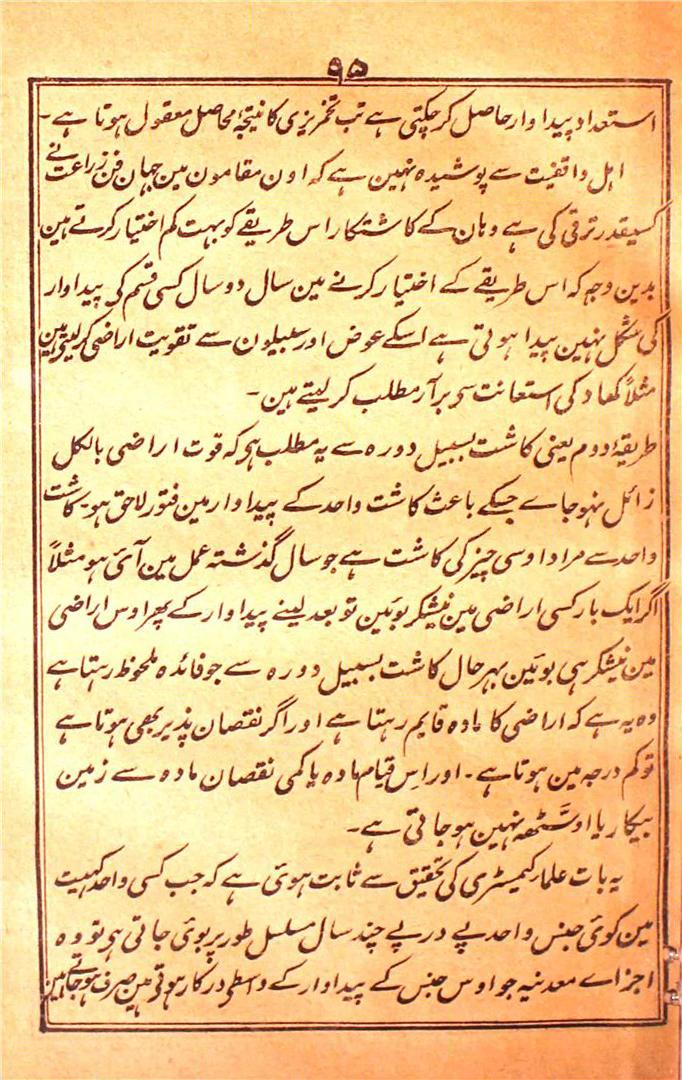 ۹۵
استعداد پیداوار حاصل کرچکتی ہے تب تخمریزی کا نتیجۂ محاصل معقول ہوتا ہے۔
اہل واقفیت سے پوشیدہ نہین ہے کہ اون مقامون مین جہان فن زراعت نے
کسیقدر ترقی کی ہے وہان کے کاشتکار اس طریقے کو بہت کم اختیار کرتے ہین
بدین وجہ کہ اس طریقے کے اختیار کرنے مین سال دو سال کسی قسم کی پیداوار
کی شکل نہین پیدا ہوتی ہے اسکے عوض اور سبیلون سے تقویت اراضی کرلیتے ہین
مثلاً کھاد کی استعانت سے برآر مطلب کر لیتے ہین۔
طریقۂ دوم یعنی کاشت بسبیل دورہ سے یہ مطلب ہی کہ قوت اراضی بالکل
زائل نہو جاے جسکے باعث کاشت واحد کے پیداوار مین فتور لاحق ہو۔ کاشت
واحد سے مراد اوسی چیز کی کاشت ہے جو سال گذشتہ عمل مین آئی ہو مثلاً
اگر ایک بار کسی اراضی مین نیشکر بوئین تو بعد لینے پیداوار کے پھر اوس اراضی
مین نیشکر ہی بوئین بہر حال کاشت بسبیل دورہ سے جو فائدہ ملحوظ رہتا ہے
وہ یہ ہے کہ اراضی کا مادہ قایم رہتا ہے اور اگر نقصان پذیر بھی ہوتا ہے
تو کم درجہ مین ہوتا ہے۔ اور اِس قیام مادہ یا کمی نقصان مادہ سے زمین
بیکار یا اوسَٹھہ نہین ہو جاتی ہے۔
یہ بات علماء کیمسٹری کی تحقیق سے ثابت ہوئی ہے کہ جب کسی واحد کھیت
مین کوئی جنس واحد پے در پے چند سال مسلسل طور پر بوئی جاتی ہی تو وہ
اجزاے معدنیہ جو اوس جنس کے پیداوار کے واسطی درکار ہوتی ہین صرف ہو جاتے ہین